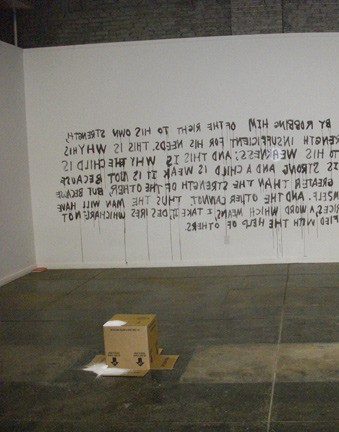 BY ROBBING HIM OF THE RIGHT TO HIS OWN STRENGTH,
RENGTH INSUFFICIENT FOR HIS NEEDS. THIS IS WHY HIS
TO HIS WEAKNESS; AND THIS IS WHY THE CHILD IS
IS STRONG AND A CHILD IS WEAK IT IS NOT BECAUSE
GREATER THAN THE STRENGTH OF THE OTHER, BUT BECAUSE
MSELF. AND THE OTHER CANNOT. THUS THE MAN WILL HAVE
RICES, A WORD WHICH MEANS, I TAKE IT, DESIRES WHICH ARE NOT
FIED WITH THE HELP OF OTHERS.